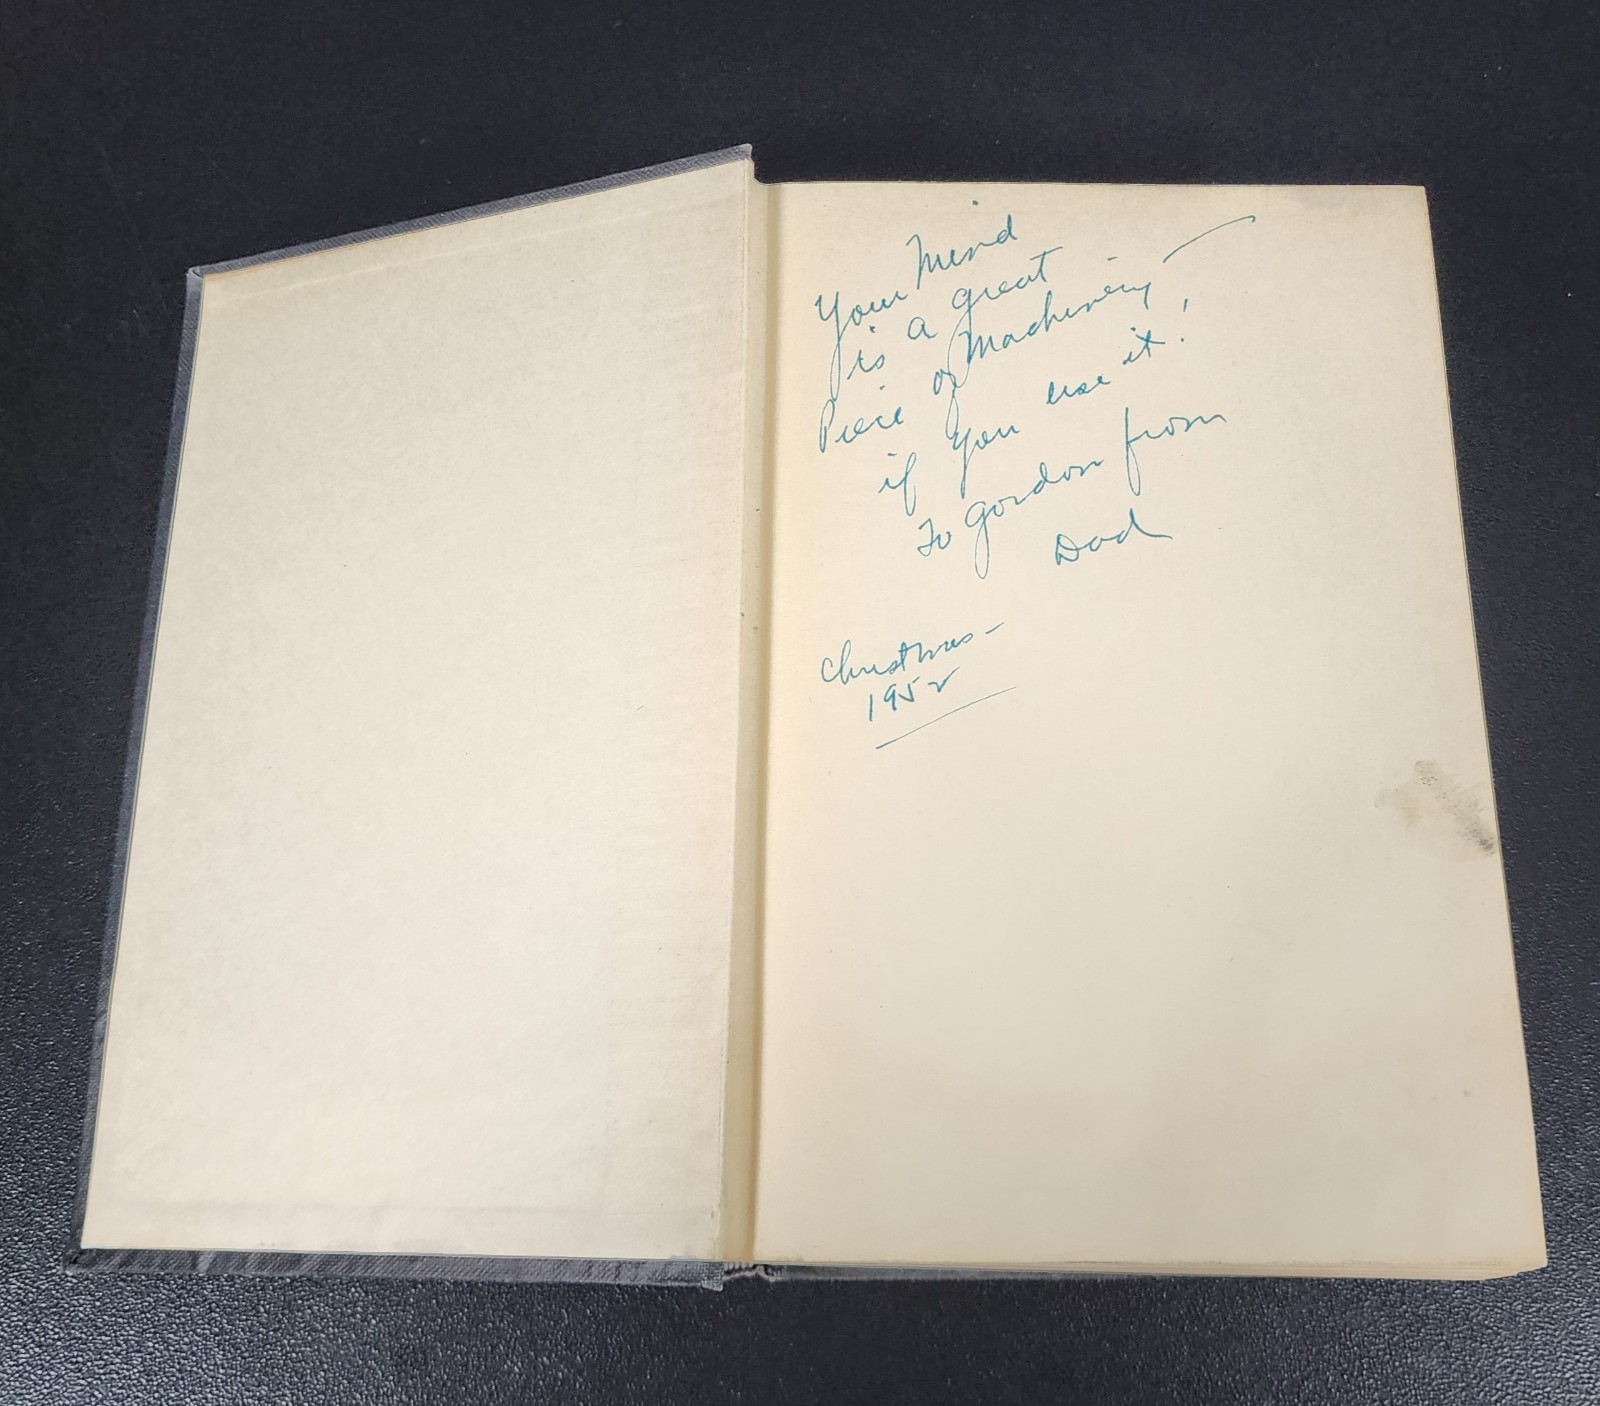 Your Mind
is a great
Piece of Machinery —
if you use it!
To Gordon from
Dad
Christmas –
1952